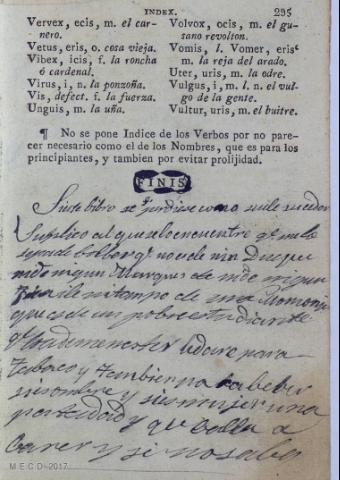 INDEX.
295
Vervex, ecis, m. el car-
nero.
Vetus, eris, o. cosa vieja.
Vibex, icis, f. la roncha
ó cardenal.
Virus, i, n. la ponzoña.
Vis, defect. f. la fuerza.
Unguis, m. la uña.
Volvox, ocis, m. el gu-
sano revolton.
Vomis, l. Vomer, eris
m. la reja del arado.
Uter, uris, m. la odre.
Vulgus, i, m. l. n. el vul-
go de la gente.
Vultur, uris, m. el buitre.
¶ No se pone Indice de los Verbos por no pare-
cer necesario como el de los Nombres, que es para los
principiantes, y tambien por evitar prolijidad.
FINIS
Si este libro se perdiese como suele suceder
Suplico al que lo encuentre
de
que es de un pobre estudiante
para
tabaco y tambien para beber
si es ombre y si es mujer una
y que balla a
y si no sabe
MECD 2017